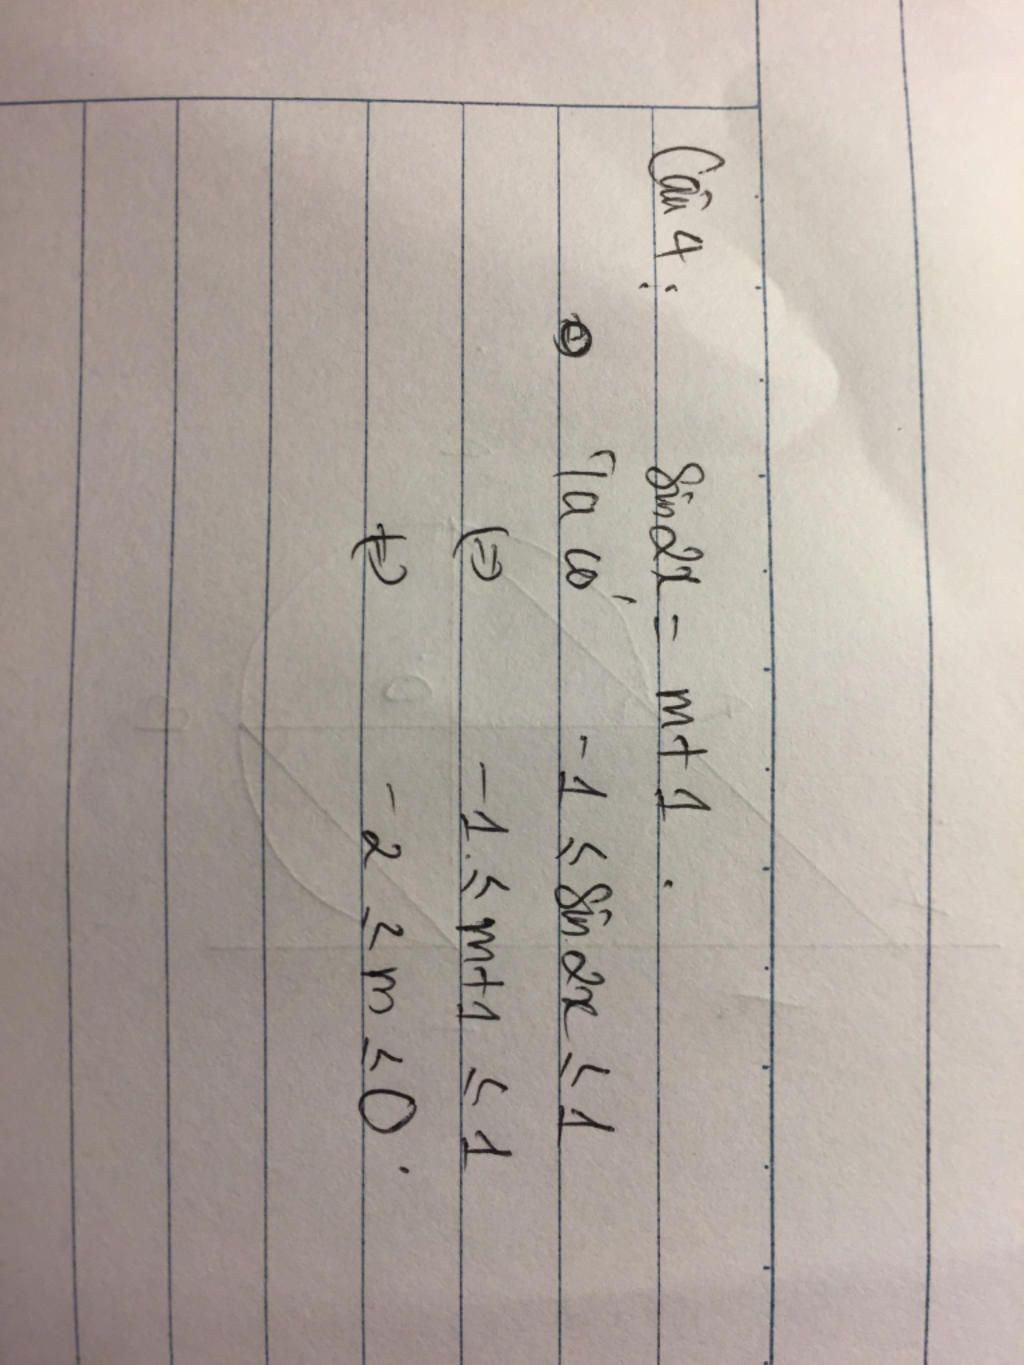 Câu 4:
sin2x = m+1.
Ta có -1 ≤ sin2x ≤ 1
⇔ -1 ≤ m+1 ≤ 1
⇔ -2 ≤ m ≤ 0.